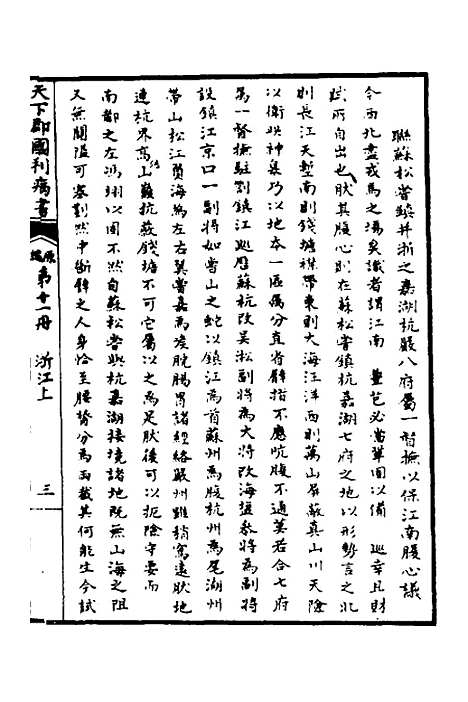 聯蘇松常鎮并浙之嘉湖杭嚴八府屬一督撫以保江南腹心議
今西北盡戎馬之場矣識者謂江南 豐芑必當鞏固以備 巡幸且財
賦所自出也肰其腹心則在蘇松常鎮杭嘉湖七府之地以形勢言之北
則長江天塹南則錢塘襟帶東則大海汪洋西則萬山屏蔽真山川天險
以衛此神皋乃以地本一區屬分直省臂指不應吭腹不通莫若合七府
屬一督撫駐劄鎮江巡歷蘇杭改吳淞副將為大將改海鹽參將為副將
設鎮江京口一副將如常山之蛇以鎮江為首蘇州為腹杭州為尾湖州
帶山松江負海為左右翼常嘉為處脘腸胃諸經絡嚴州雖稍寫遠肰地
連杭界高上巖杭蘇錢塘不可它屬以之為足肰後可以扼險守要而
南都之左馮翊以固不然自蘇松常與杭嘉湖接境諸地既無山海之阻
又無關隘可塞劃然中斷譬之人身恰至腰膂分為兩截其何能生今試
天下郡國利病書
原編
第廿一冊
浙江上
三